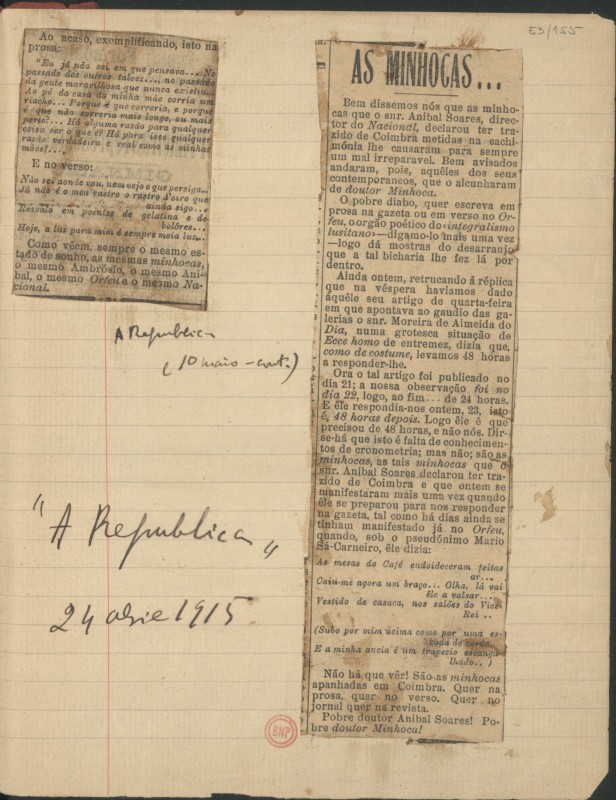 E3/155
Ao acaso, exemplificando, isto na
prosa:
"Eu já não sei em que pensava... No
passado dos outros talvez..., no passado
da gente maravilhosa que nunca existiu...
Ao pé da casa da minha mãe corria um
riacho... Porque é que correria, e porque
é que não correria mais longe, ou mais
perto?... Há alguma razão para qualquer
coisa ser o que é? Há para isso qualquer
razão verdadeira e real como as minhas
mãos?...
E no verso:
Não sei aonde vou, nem vejo o que persigo...
Já não é o meu rastro o rastro d'oiro que
ainda sigo...
Resvalo em pontes de gelatina e de
bolôres...
Hoje, a luz para mim é sempre meia luz...
Como vêem, sempre o mesmo es-
tado de sonho, as mesmas minhocas,
o mesmo Ambrósio, o mesmo Aní-
bal, o mesmo Orfeu e o mesmo Na-
cional.
A Republica
(10 maio - cont.)
"A Republica"
24 abril 1915
AS MINHOCAS...
Bem dissemos nós que as minho-
cas que o snr. Anibal Soares, direc-
tor do Nacional, declarou ter tra-
zido de Coimbra metidas na cachi-
mónia lhe causaram para sempre
um mal irreparavel. Bem avisados
andaram, pois, aquêles dos seus
contemporaneos, que o alcunharam
de doutor Minhoca.
O pobre diabo, quer escreva em
prosa na gazeta ou em verso no Or-
feu, o orgão poético do «integralismo
lusitano»—digamo-lo mais uma vez
—logo dá mostras do desarranjo
que a tal bicharia lhe fez lá por
dentro.
Ainda ontem, retrucando á réplica
que na véspera haviamos dado
àquêle seu artigo de quarta-feira
em que apontava ao gaudio das ga-
lerias o snr. Moreira de Almeida do
Dia, numa grotesca situação de
Ecce homo de entremez, dizia que,
como de costume, levamos 48 horas
a responder-lhe.
Ora o tal artigo foi publicado no
dia 21; a nossa observação foi no
dia 22, logo, ao fim... de 24 horas.
E êle respondia-nos ontem, 23, isto
é, 48 horas depois. Logo êle é que
precisou de 48 horas, e não nós. Dir-
se-há que isto é falta de conhecimen-
tos de cronometria; mas não; são as
minhocas, as tais minhocas que o
snr. Anibal Soares declarou ter tra-
zido de Coimbra e que ontem se
manifestaram mais uma vez quando
êle se preparou para nos responder
na gazeta, tal como há dias ainda se
tinham manifestado já no Orfeu,
quando, sob o pseudónimo Mario
Sá-Carneiro, êle dizia:
As mesas do Café endoideceram feitas
ar...
Caiu-me agora um braço... Olha, lá vai
Ele a valsar...
Vestido de casaca, nos salões do Vice
Rei ..
(Subo por mim ácima como por uma es-
cada de corda,
E a minha ancia é um trapezio escanga-
lhado.. )
Não há que vêr! São as minhocas
apanhadas em Coimbra. Quer na
prosa, quer no verso. Quer no
jornal quer na revista.
Pobre doutor Anibal Soares! Po-
bre doutor Minhoca!
BNP